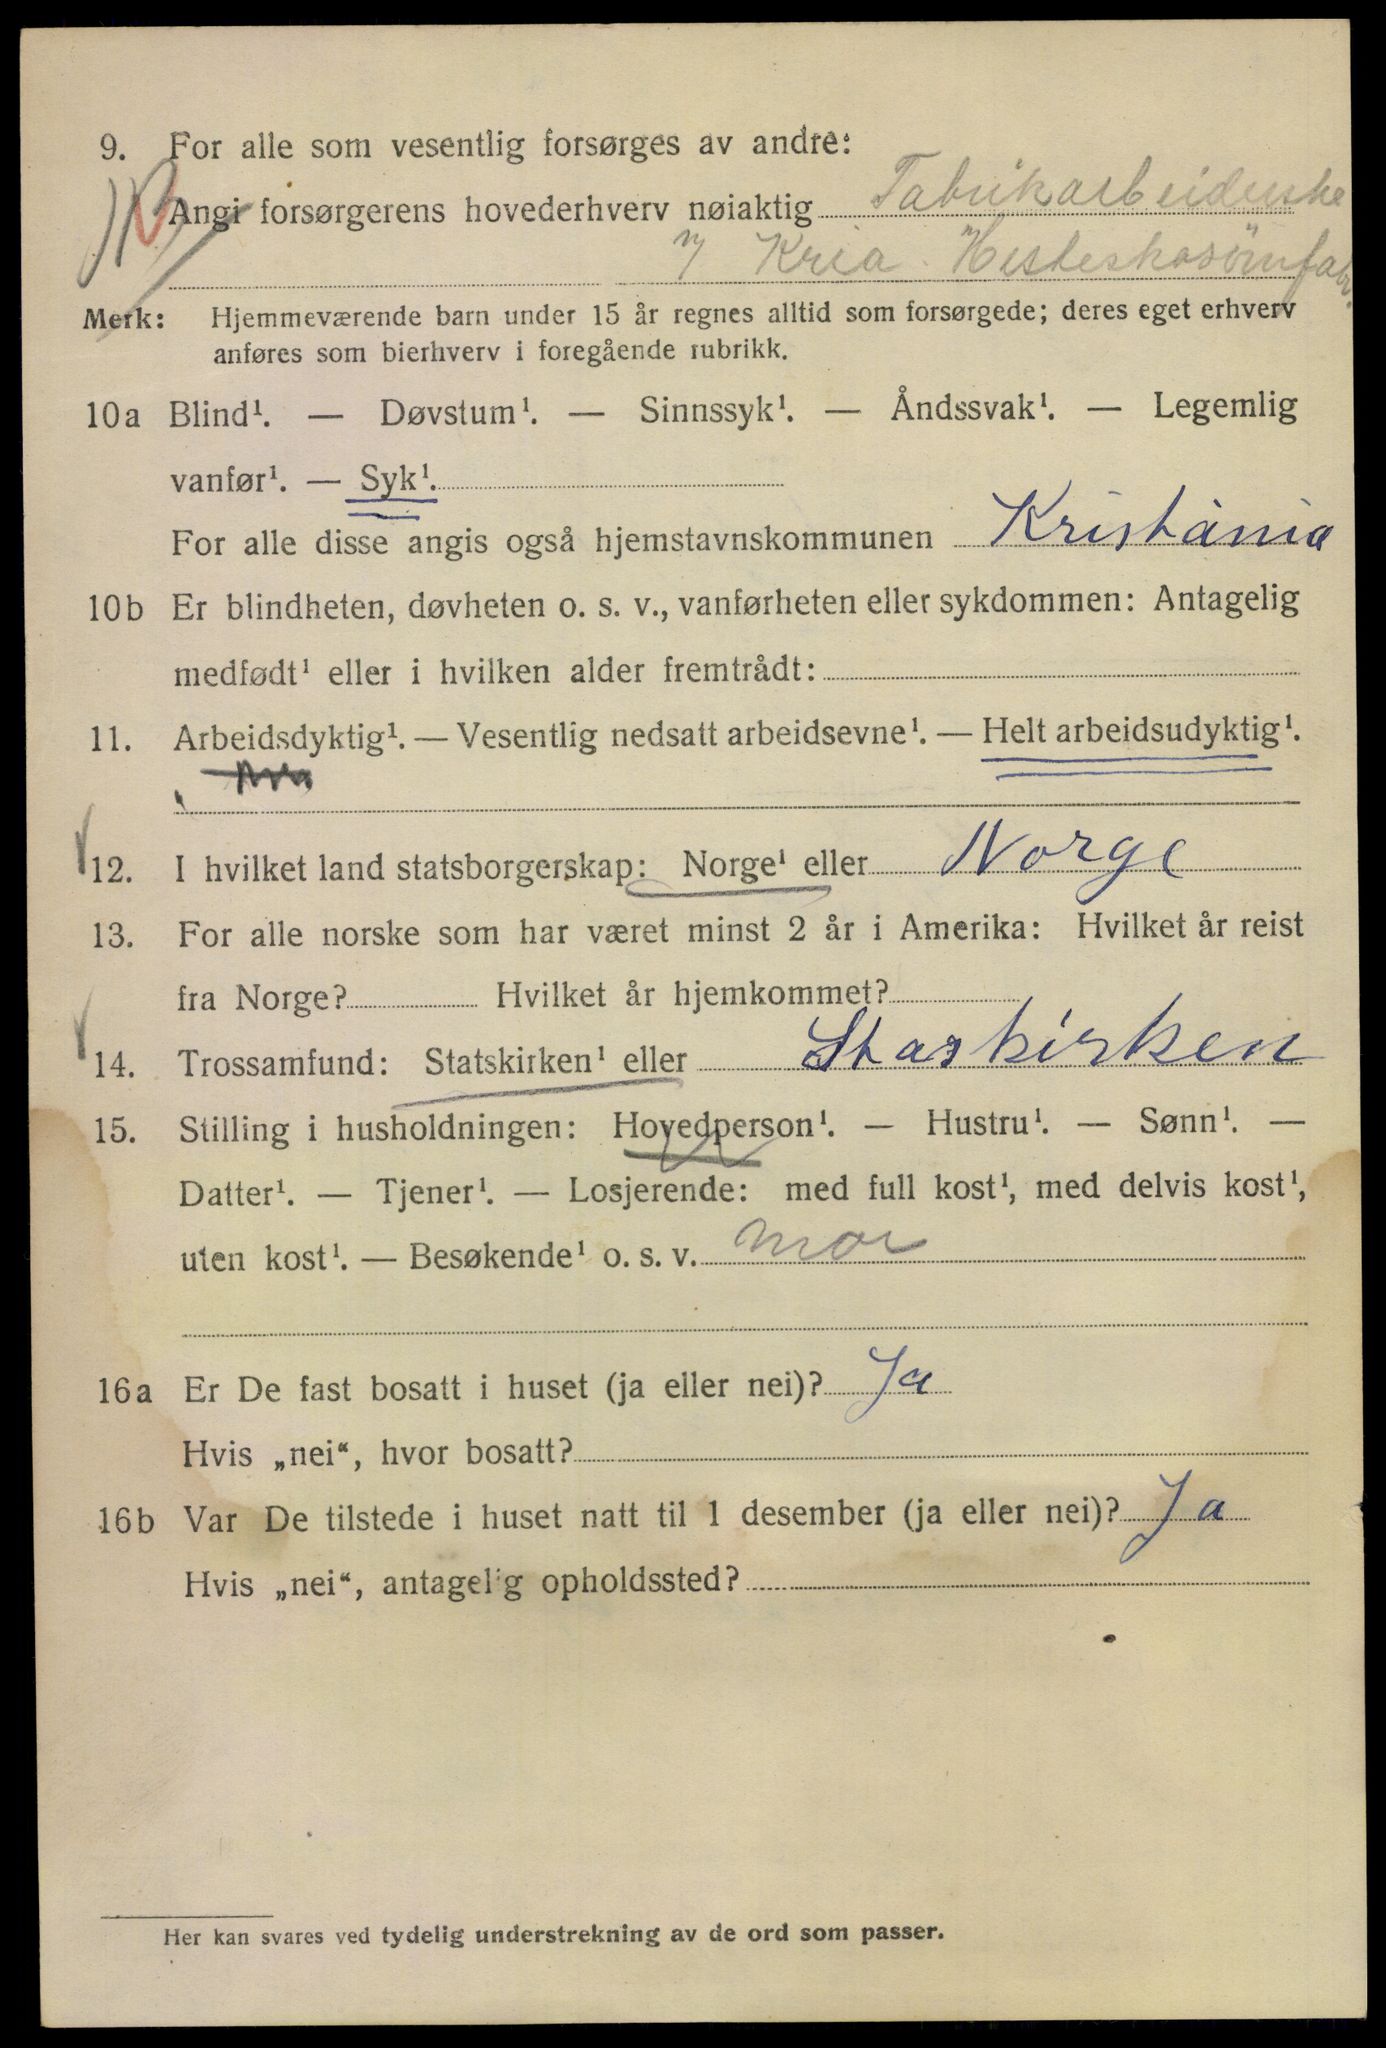 9. For alle som vesentlig forsørges av andre:
Angi forsørgerens hovederhverv nøiaktig Fabrikarbeiderske
v/ Kria. Hesteskosömfabr.
Merk: Hjemmeværende barn under 15 år regnes alltid som forsørgede; deres eget erhverv
anføres som bierhverv i foregående rubrikk.
10a Blind¹. — Døvstum¹. — Sinnssyk¹. — Åndssvak¹. — Legemlig
vanfør¹. — Syk¹.
For alle disse angis også hjemstavnskommunen Kristania
10b Er blindheten, døvheten o. s. v., vanførheten eller sykdommen: Antagelig
medfødt¹ eller i hvilken alder fremtrådt:
11. Arbeidsdyktig¹. — Vesentlig nedsatt arbeidsevne¹. — Helt arbeidsudyktig¹.
12. I hvilket land statsborgerskap: Norge¹ eller Norge
13. For alle norske som har været minst 2 år i Amerika: Hvilket år reist
fra Norge? Hvilket år hjemkommet?
14. Trossamfund: Statskirken¹ eller Staskirken
15. Stilling i husholdningen: Hovedperson¹. — Hustru¹. — Sønn¹. —
Datter¹. — Tjener¹. — Losjerende: med full kost¹, med delvis kost¹,
uten kost¹. — Besøkende¹ o. s. v. mor
16a Er De fast bosatt i huset (ja eller nei)? Ja
Hvis „nei“, hvor bosatt?
16b Var De tilstede i huset natt til 1 desember (ja eller nei)? Ja
Hvis „nei“, antagelig opholdssted?
Her kan svares ved tydelig understrekning av de ord som passer.